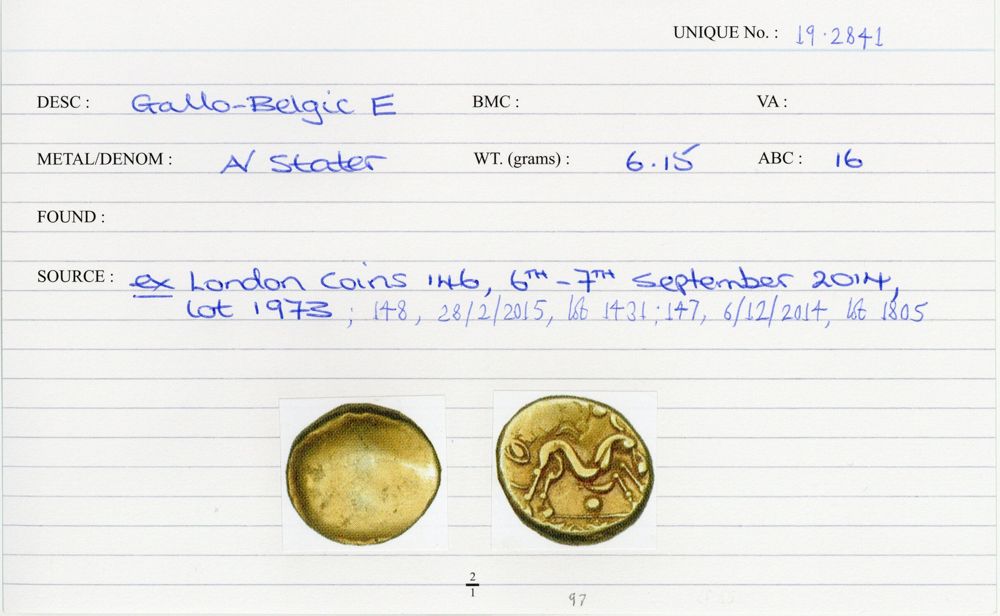 UNIQUE No. : 19.2841
DESC : Gallo-Belgic E BMC : VA :
METAL/DENOM : A/ Stater WT. (grams) : 6.15 ABC : 16
FOUND :
SOURCE : ex London Coins 146, 6TH - 7TH September 2014,
Lot 1973 ; 148, 28/2/2015, lot 1431 ; 147, 6/12/2014, lot 1805
2
1
97